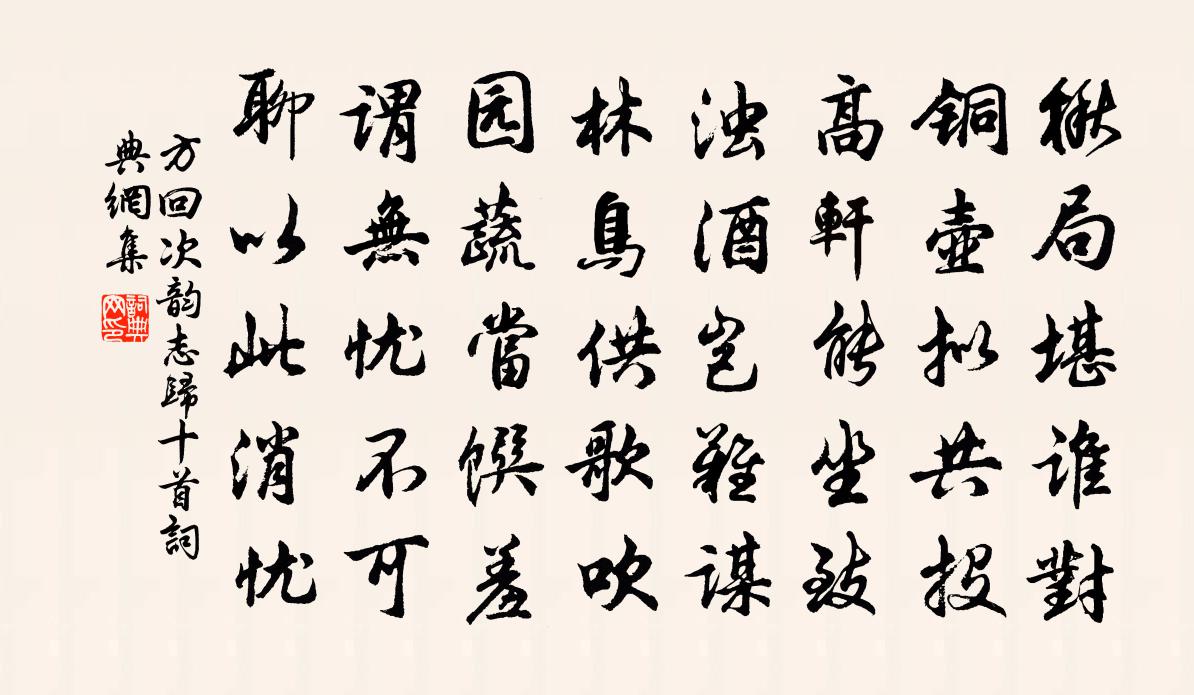 楸局堪谁對
銅壺拟共投
高軒能坐致
浊酒岂難謀
林鳥供歌吹
园蔬當馔羞
謂無忧不可
聊以此消忧
方回次韵志歸十首詞
典網集
詞典网印